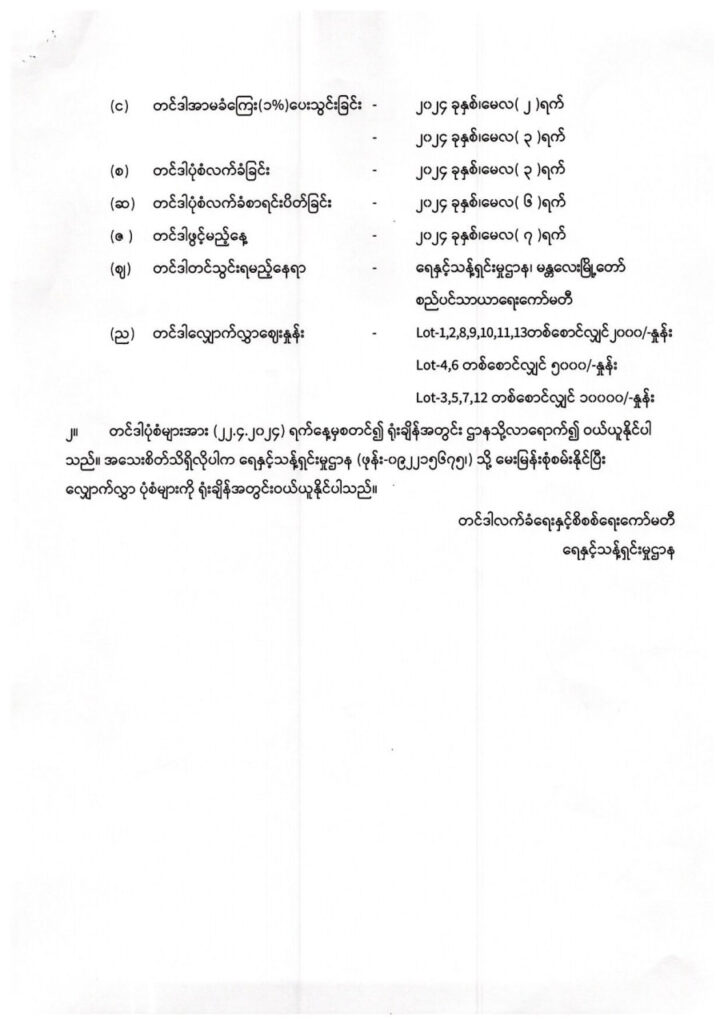 (င) တင်ဒါအာမခံကြေး(၁%)ပေးသွင်းခြင်း - ၂၀၂၄ ခုနှစ်၊မေလ( ၂ )ရက်
- ၂၀၂၄ ခုနှစ်၊မေလ( ၃ )ရက်
(စ) တင်ဒါပုံစံလက်ခံခြင်း - ၂၀၂၄ ခုနှစ်၊မေလ( ၃ )ရက်
(ဆ) တင်ဒါပုံစံလက်ခံစာရင်းပိတ်ခြင်း - ၂၀၂၄ ခုနှစ်၊မေလ( ၆ )ရက်
(ဇ ) တင်ဒါဖွင့်မည့်နေ့ - ၂၀၂၄ ခုနှစ်၊မေလ( ၇ )ရက်
(ဈ) တင်ဒါတင်သွင်းရမည့်နေရာ - ရေနှင့်သန့်ရှင်းမှုဌာန၊ မန္တလေးမြို့တော်
စည်ပင်သာယာရေးကော်မတီ
(ည) တင်ဒါလျှောက်လွှာဈေးနှုန်း - Lot-1,2,8,9,10,11,13တစ်စောင်လျှင်၂၀၀၀/-နှုန်း
Lot-4,6 တစ်စောင်လျှင် ၅၀၀၀/-နှုန်း
Lot-3,5,7,12 တစ်စောင်လျှင် ၁၀၀၀၀/-နှုန်း
၂။ တင်ဒါပုံစံများအား (၂၂.၄.၂၀၂၄) ရက်နေ့မှစတင်၍ ရုံးချိန်အတွင်း ဌာနသို့လာရောက်၍ ဝယ်ယူနိုင်ပါ
သည်။ အသေးစိတ်သိရှိလိုပါက ရေနှင့်သန့်ရှင်းမှုဌာန (ဖုန်း-၀၉၂၂၁၅၆၇၅၊) သို့ မေးမြန်းစုံစမ်းနိုင်ပြီး
လျှောက်လွှာ ပုံစံများကို ရုံးချိန်အတွင်းဝယ်ယူနိုင်ပါသည်။
တင်ဒါလက်ခံရေးနှင့်စိစစ်ရေးကော်မတီ
ရေနှင့်သန့်ရှင်းမှုဌာန